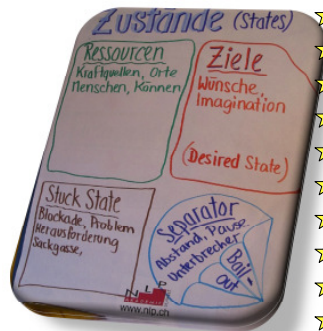 Zustände (States)
Ressourcen
Kraftquellen, Orte
Menschen, Können
Ziele
Wünsche,
Imagination
(Desired State)
Stuck State
Blockade, Problem
Herausforderung
Sackgasse,
Separator
Abstand, Pause
Unterbrecher
Bail-
Out
NLP
www.nlp.ch